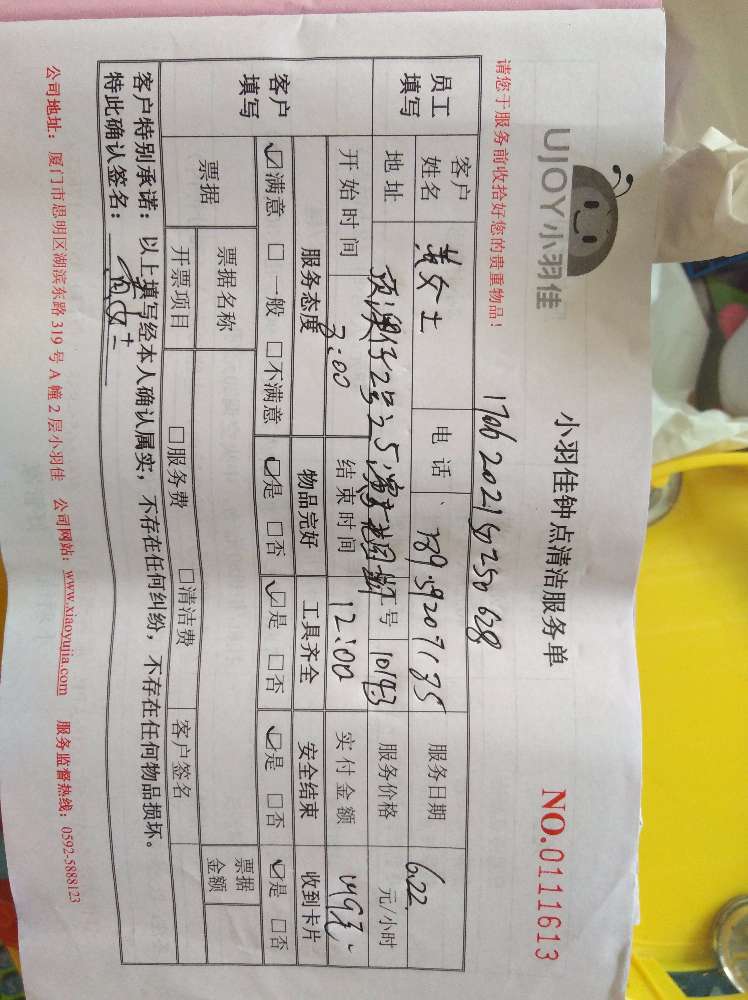 UJOY小羽佳
小羽佳钟点清洁服务单
NO.0111613
请您于服务前收拾好您的贵重物品！
员工填写
客户姓名 黄女士 电话 服务日期 6.22
地址 工号 10193 服务价格 元/小时
开始时间 结束时间 12:00 实付金额 149元
客户填写
服务态度 物品完好 工具齐全 安全结束 收到卡片
☑满意 □一般 □不满意 ☑是 □否 ☑是 □否 ☑是 □否 ☑是 □否
票据 票据名称 票据金额
开票项目 □服务费 □清洁费 客户签名
客户特别承诺：以上填写经本人确认属实，不存在任何纠纷，不存在任何物品损坏。
特此确认签名：
公司地址：厦门市思明区湖滨东路319号A幢2层小羽佳 公司网站：www.xiaoyujia.com 服务监督热线：0592-5888123